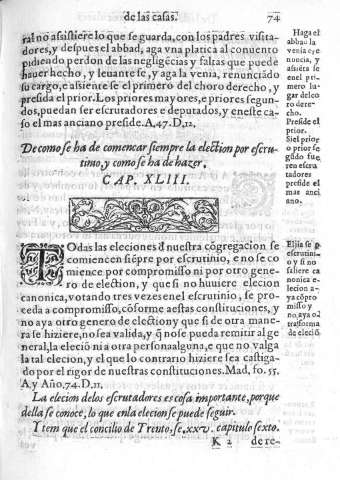 de las casas. 74
ral no asistiere lo que se guarda, con los padres visita-
dores, y despues el abbad, aga vna platica al conuento
pidiendo perdon de las negligēcias y faltas que puede
hauer hecho, y leuante se, y aga la venia, renunciādo
su cargo, e asiente se el primero del choro derecho, y
presida el prior. Los priores mayores, e priores segun-
dos, puedan ser escrutadores e deputados, y en este ca-
so el mas anciano preside. A, 47. D, 12.
Haga el
abbad la
venia e re
nuncia, y
asiēte se
en el pri-
mero lu-
gar del co
ro dere-
cho.
Preside el
prior.
Si el prior
o prior se
gūdo fue
ren escru
tadores
preside el
mas anci
ano.
De como se ha de comencar siempre la election por escru-
tinio, y como se ha de hazer.
CAP. XLIII.
TOdas las eleciones đ nuestra cōgregacion se
comiencen siēpre por escrutinio, e no se co
mience por compromisso ni por otro gene-
ro de election, y que si no huuiere elecion
canonica, votando tres vezes en el escrutinio, se pro-
ceda a compromisso, cōforme a estas constituciones, y
no aya otro genero de election y que si de otra mane-
ra se hiziere, no sea valida, y q̄ no se pueda remitir al ge
neral, la eleciō ni a otra persona alguna, e que no valga
la tal elecion, y el que lo contrario hiziere sea castiga-
do por el rigor de nuestras constituciones. Mad, fo. 55.
A, y Año, 74. D, 11.
Elijā se p
escrutini-
o y si no
saliere ca
nonica e-
lecion a-
ya cōpro
misso y
no aya ot̄
tra forma
de eleciō.
La elecion de los escrutadores es cosa importante, porque
della se conoce, lo que en la elecion se puede seguir.
Y tem que el concilio de Trento, se. xxv. capitulo sexto.
K 2 de re-